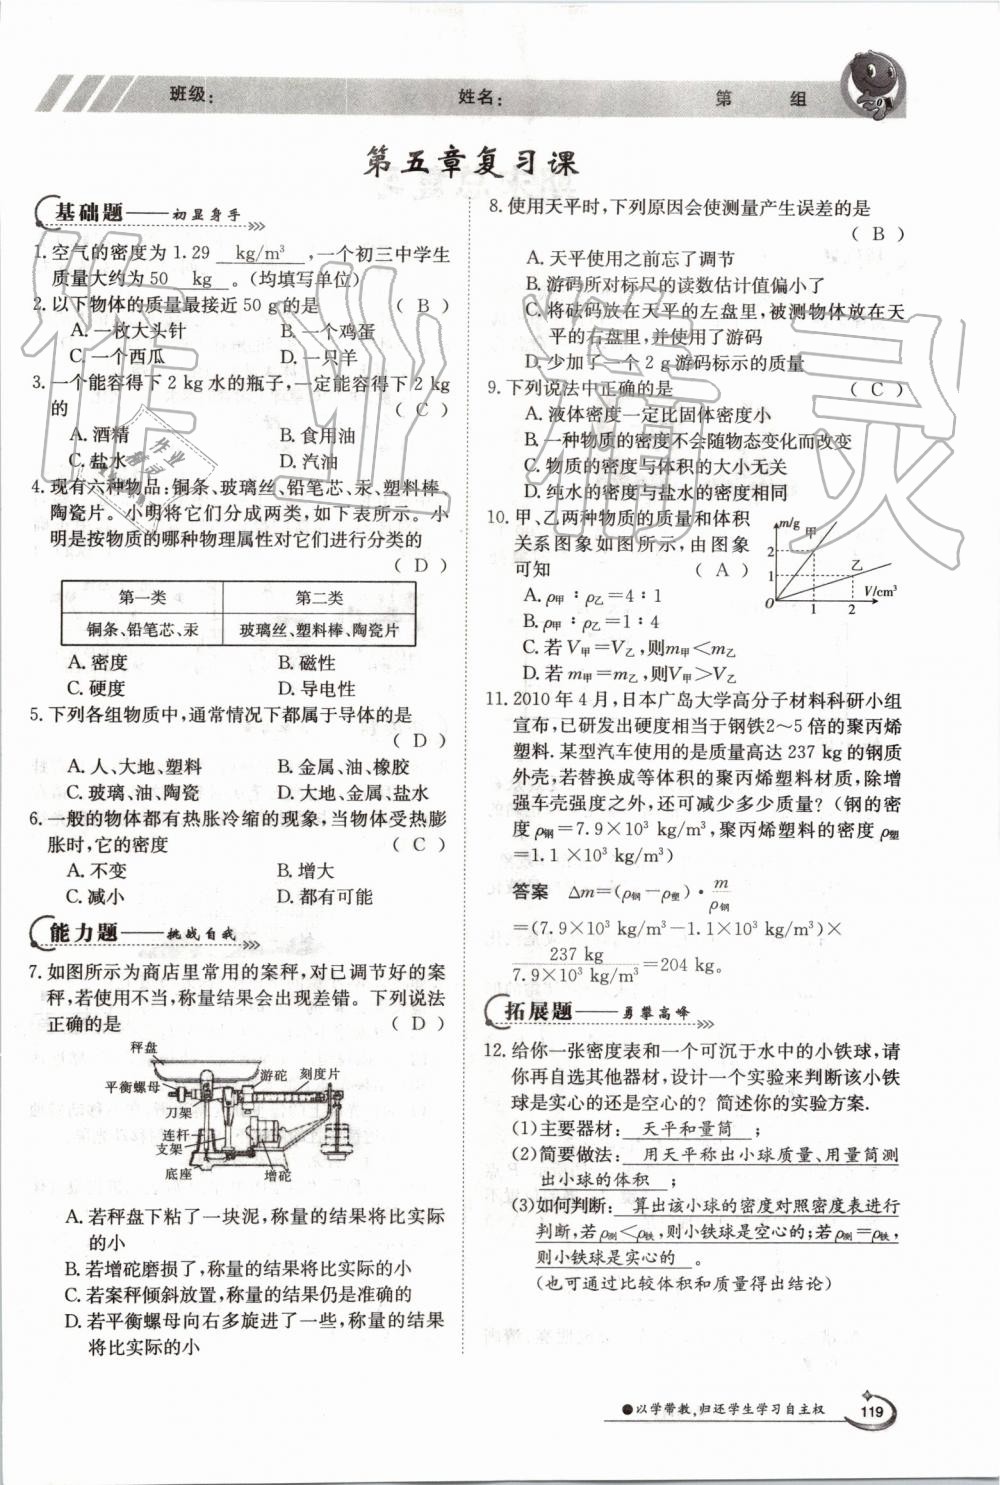 班级：
姓名：
第 组
第五章复习课
基础题——初显身手
1. 空气的密度为 1.29 kg/m³ ，一个初三中学生
质量大约为 50 kg 。（均填写单位）
2. 以下物体的质量最接近 50 g 的是 （ B ）
A. 一枚大头针 B. 一个鸡蛋
C. 一个西瓜 D. 一只羊
3. 一个能容得下 2 kg 水的瓶子，一定能容得下 2 kg
的 （ C ）
A. 酒精 B. 食用油
C. 盐水 D. 汽油
4. 现有六种物品：铜条、玻璃丝、铅笔芯、汞、塑料棒、
陶瓷片。小明将它们分成两类，如下表所示。小
明是按物质的哪种物理属性对它们进行分类的
（ D ）
第一类 第二类
铜条、铅笔芯、汞 玻璃丝、塑料棒、陶瓷片
A. 密度 B. 磁性
C. 硬度 D. 导电性
5. 下列各组物质中，通常情况下都属于导体的是
（ D ）
A. 人、大地、塑料 B. 金属、油、橡胶
C. 玻璃、油、陶瓷 D. 大地、金属、盐水
6. 一般的物体都有热胀冷缩的现象，当物体受热膨
胀时，它的密度 （ C ）
A. 不变 B. 增大
C. 减小 D. 都有可能
能力题——挑战自我
7. 如图所示为商店里常用的案秤，对已调节好的案
秤，若使用不当，称量结果会出现差错。下列说法
正确的是 （ D ）
秤盘
游砣 刻度片
平衡螺母
刀架
连杆
支架
底座 增砣
A. 若秤盘下粘了一块泥，称量的结果将比实际
的小
B. 若增砣磨损了，称量的结果将比实际的小
C. 若案秤倾斜放置，称量的结果仍是准确的
D. 若平衡螺母向右多旋进了一些，称量的结果
将比实际的小
8. 使用天平时，下列原因会使测量产生误差的是
（ B ）
A. 天平使用之前忘了调节
B. 游码所对标尺的读数估计值偏小了
C. 将砝码放在天平的左盘里，被测物体放在天
平的右盘里，并使用了游码
D. 少加了一个 2 g 游码标示的质量
9. 下列说法中正确的是 （ C ）
A. 液体密度一定比固体密度小
B. 一种物质的密度不会随物态变化而改变
C. 物质的密度与体积的大小无关
D. 纯水的密度与盐水的密度相同
10. 甲、乙两种物质的质量和体积
关系图象如图所示，由图象
可知 （ A ）
A. ρ甲：ρ乙＝4：1
B. ρ甲：ρ乙＝1：4
C. 若 V甲＝V乙，则m甲＜m乙
D. 若 m甲＝m乙，则V甲＞V乙
m/g 甲
2
1 乙
V/cm³
O 1 2
11. 2010 年 4 月，日本广岛大学高分子材料科研小组
宣布，已研发出硬度相当于钢铁2～5 倍的聚丙烯
塑料. 某型汽车使用的是质量高达 237 kg 的钢质
外壳，若替换成等体积的聚丙烯塑料材质，除增
强车壳强度之外，还可减少多少质量？（钢的密
度 ρ钢＝7.9×10³ kg/m³，聚丙烯塑料的密度 ρ塑
＝1.1×10³ kg/m³）
答案 Δm＝(ρ钢－ρ塑)·m/ρ钢
＝(7.9×10³ kg/m³－1.1×10³ kg/m³)×
237 kg/7.9×10³ kg/m³＝204 kg。
拓展题——勇攀高峰
12. 给你一张密度表和一个可沉于水中的小铁球，请
你再自选其他器材，设计一个实验来判断该小铁
球是实心的还是空心的？简述你的实验方案.
(1)主要器材： 天平和量筒 ；
(2)简要做法： 用天平称出小球质量、用量筒测
出小球的体积 ；
(3)如何判断： 算出该小球的密度对照密度表进行
判断，若 ρ测＜ρ铁，则小铁球是空心的；若 ρ测＝ρ铁，
则小铁球是实心的 。
（也可通过比较体积和质量得出结论）
●以学带教，归还学生学习自主权
119
作业精灵
作业
精灵